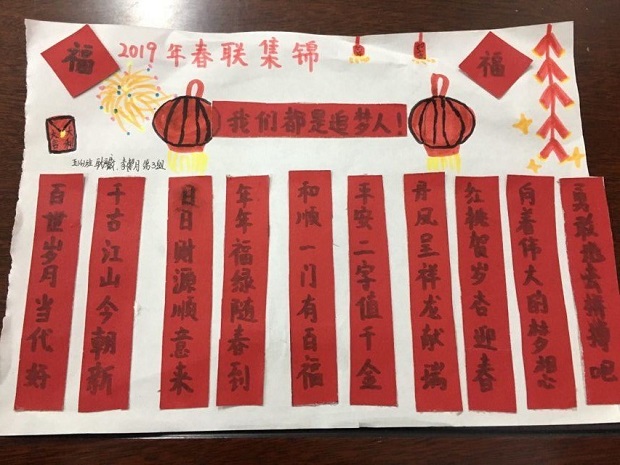 福
2019年春联集锦
福
我们都是追梦人!
第3组
百世岁月当代好
千古江山今朝新
日日财源顺意来
年年福绿随春到
和顺一门有百福
平安二字值千金
丹凤呈祥龙献瑞
红桃贺岁杏迎春
向着伟大的梦想
勇敢地去拼搏吧